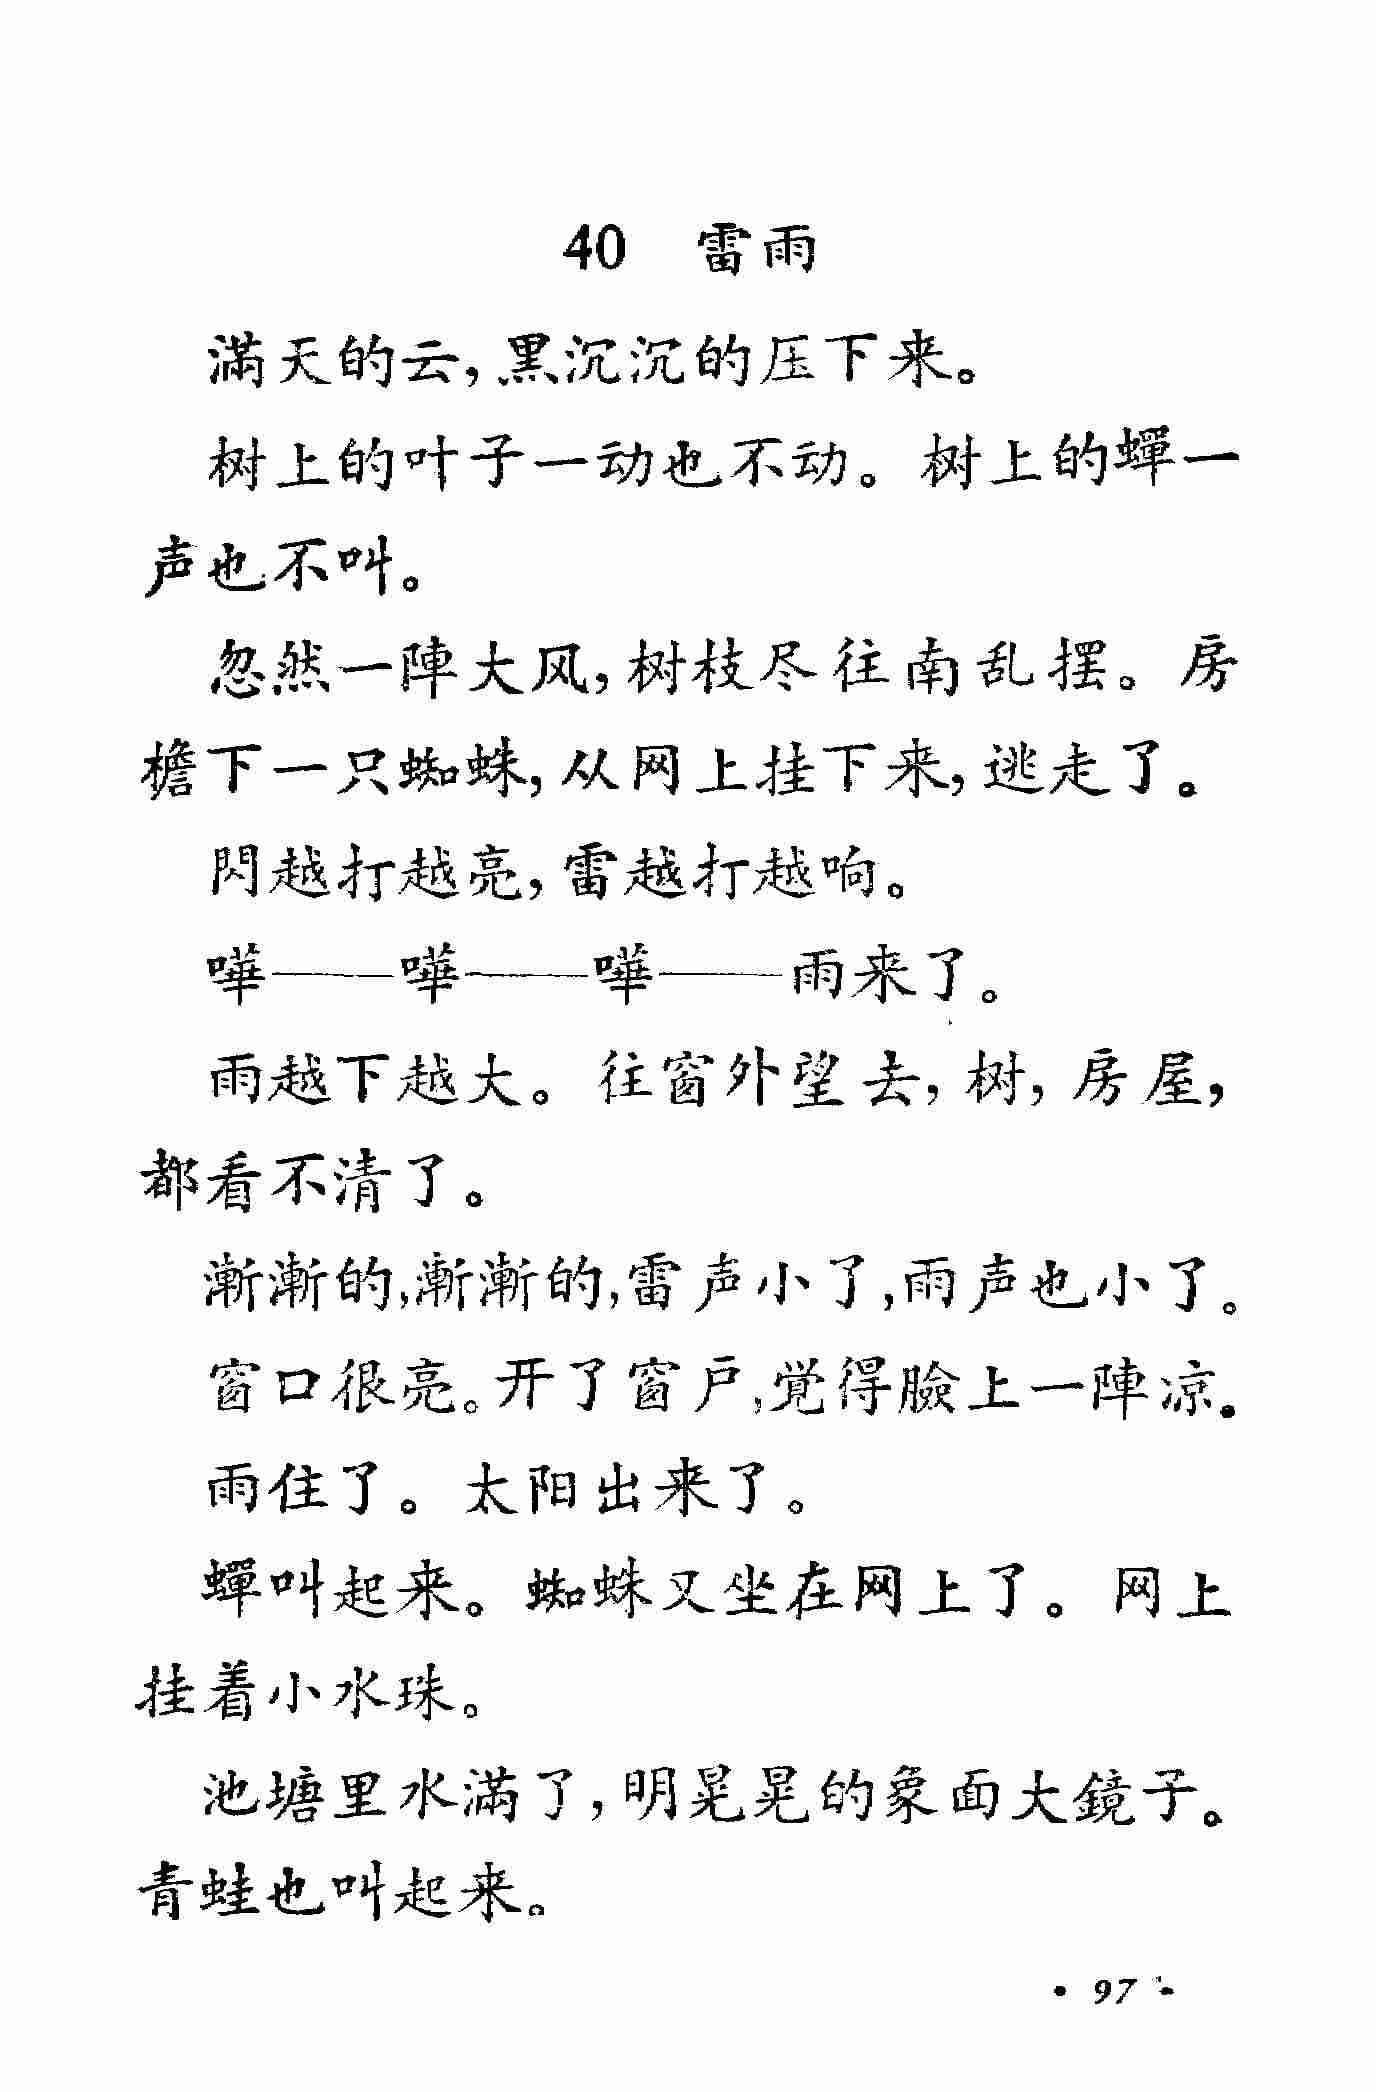 40 雷雨
滿天的云,黑沉沉的压下来。
树上的叶子一动也不动。树上的蟬一
声也不叫。
忽然一陣大风,树枝尽往南乱摆。房
檐下一只蜘蛛,从网上挂下来,逃走了。
閃越打越亮,雷越打越响。
嘩——嘩——嘩——雨来了。
雨越下越大。往窗外望去,树,房屋,
都看不清了。
漸漸的,漸漸的,雷声小了,雨声也小了。
窗口很亮。开了窗戶,覚得臉上一陣凉。
雨住了。太阳出来了。
蟬叫起来。蜘蛛又坐在网上了。网上
挂着小水珠。
池塘里水滿了,明晃晃的象面大鏡子。
青蛙也叫起来。
· 97 ·